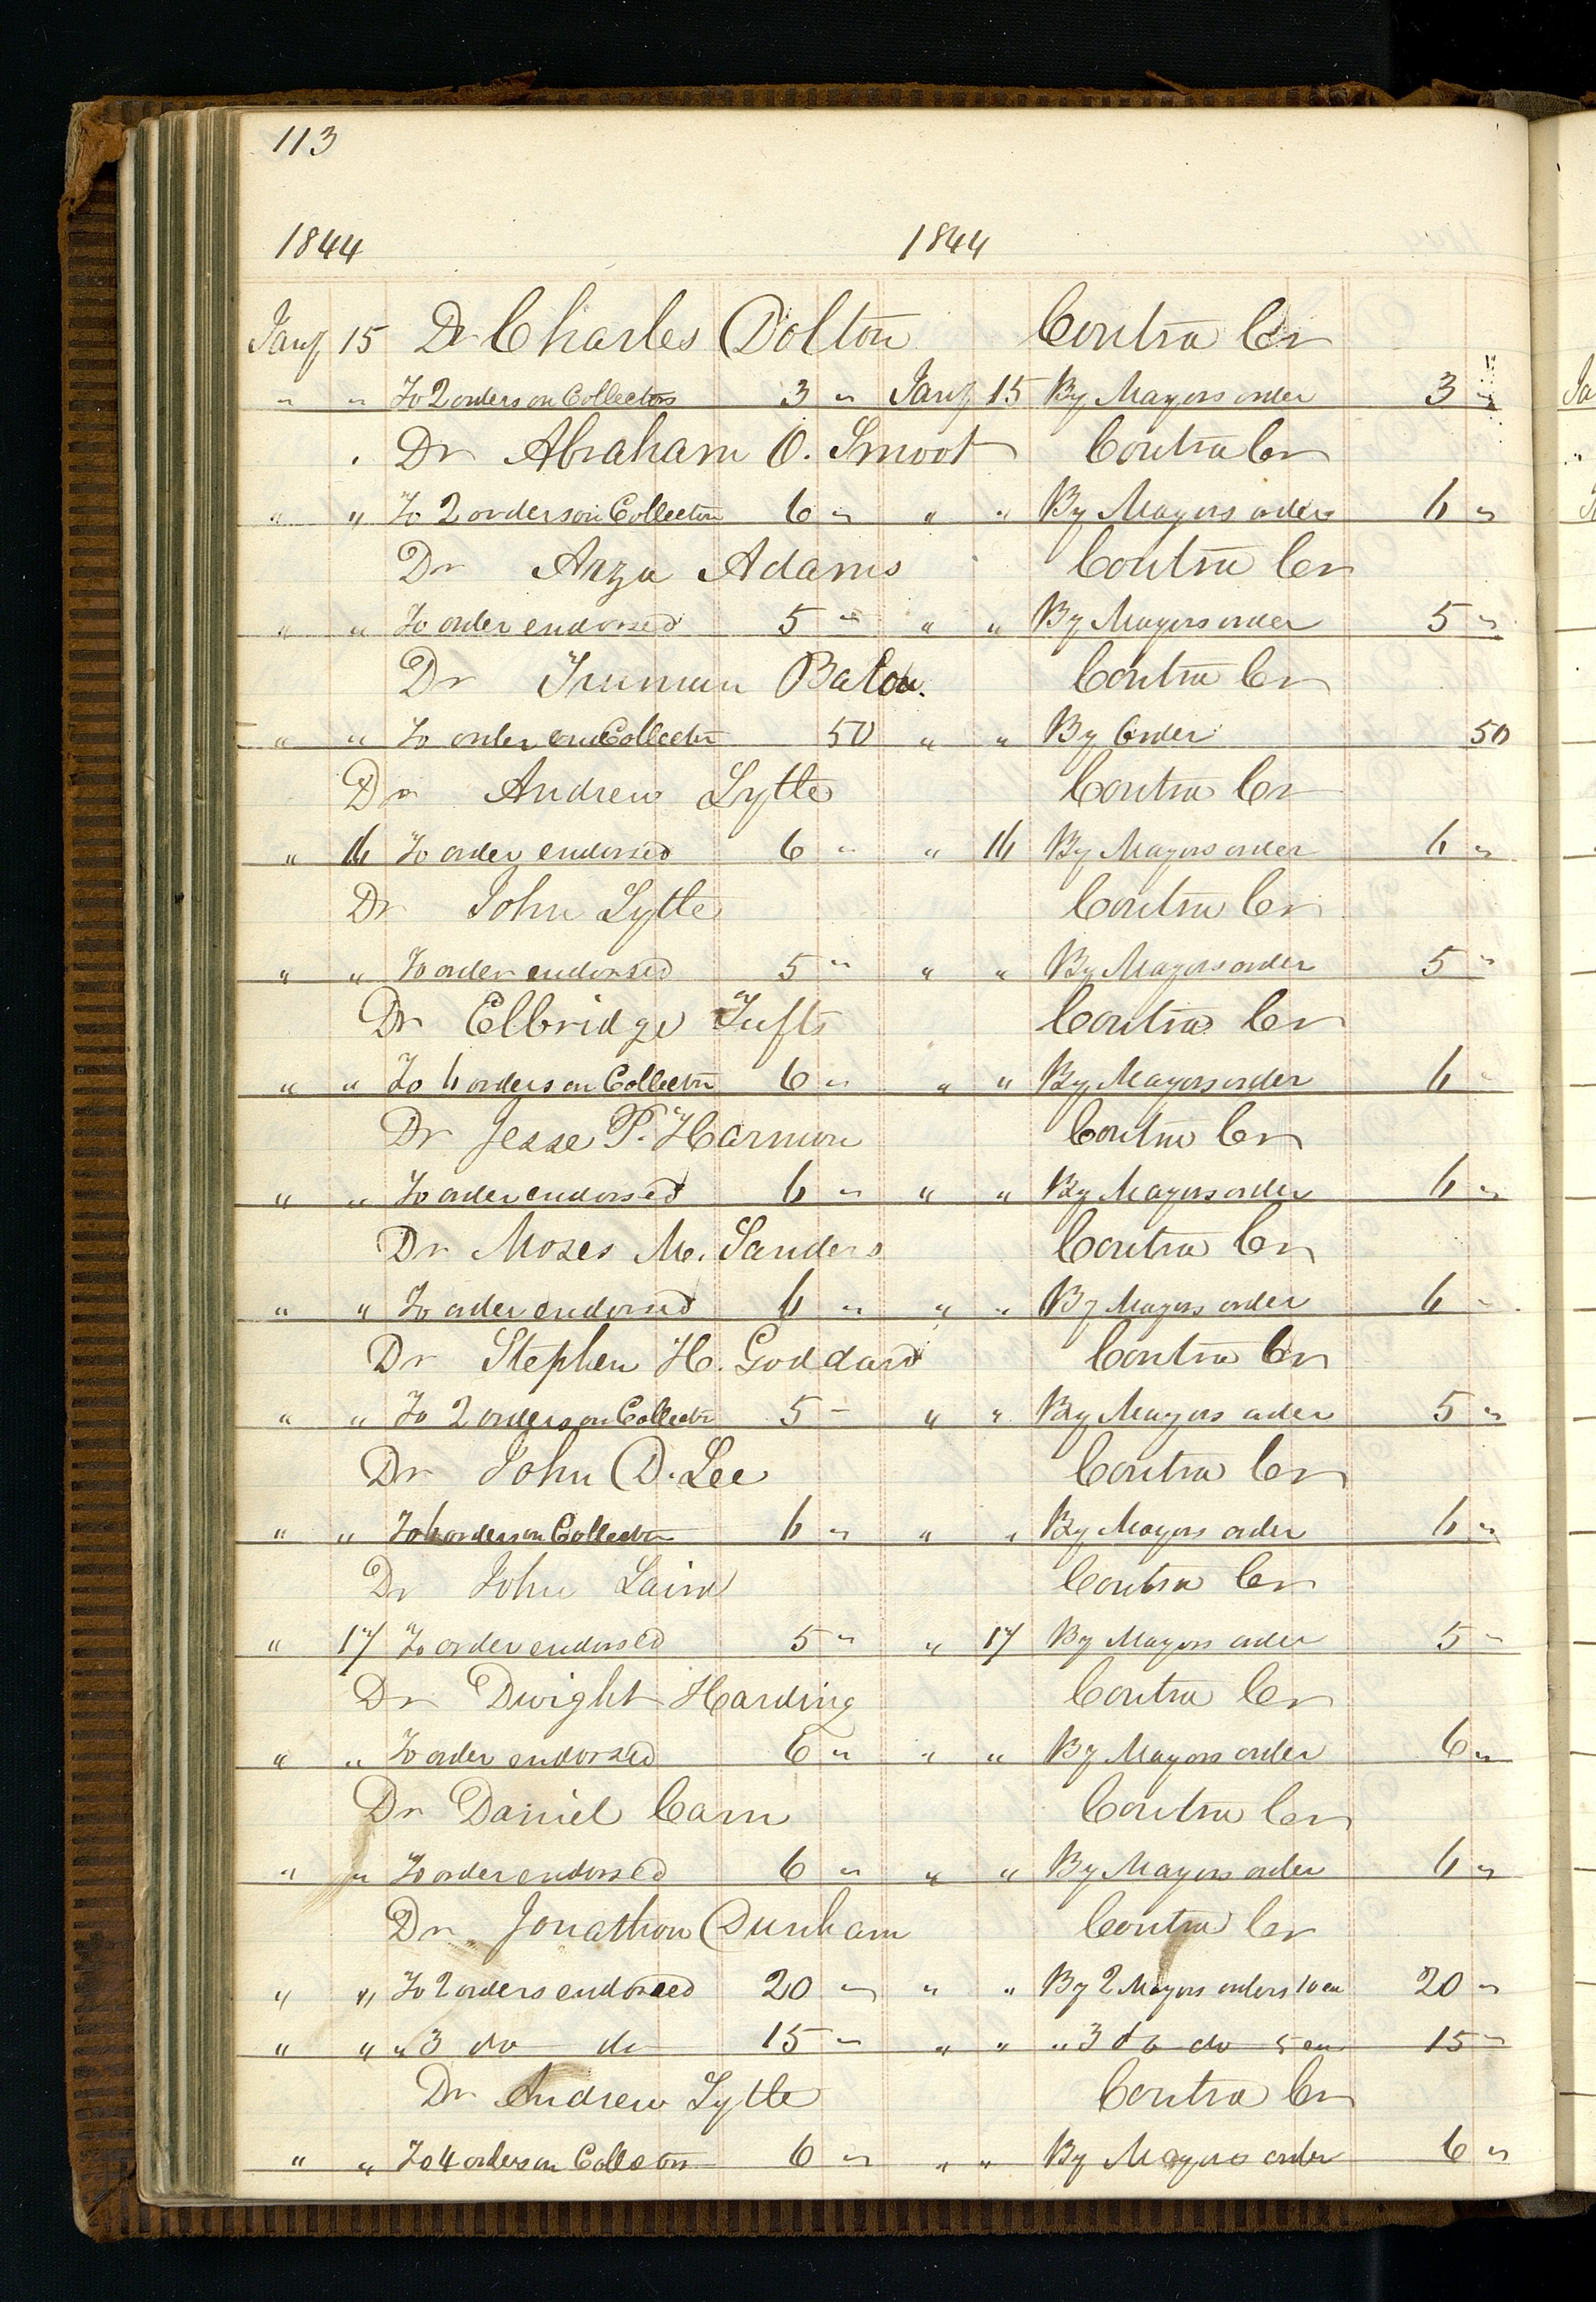 113
1844 1844
Jany 15 Dr Charles Dolton Contra Cr
" " To 2 orders on Collectors 3 " Jany 15 By Mayors order 3 "
Dr Abraham O. Smoot Contra Cr
" " To 2 orders on Collector 6 " " " By Mayors orders 6 "
Dr Arza Adams Contra Cr
" " To order endorsed 5 " " " By Mayors order 5 "
Dr Truman Contra Cr
" " To order on Collector 50 " " By Order 50
Dr Andrew Lytle Contra Cr
" 16 To order endorsed 6 " " 16 By Mayors order 6 "
Dr John Lytle Contra Cr
" " To order endorsed 5 " " " By Mayors order 5 "
Dr Elbridge Tufts Contra Cr
" " To 6 orders on Collector 6 " " " By Mayors order 6 "
Dr Jesse P. Harmon Contra Cr
" " To order endorsed 6 " " " By Mayors order 6 "
Dr Moses M. Sanders Contra Cr
" " To order endorsed 6 " " " By Mayors order 6 "
Dr Stephen H. Goddard Contra Cr
" " To 2 orders on Collector 5 " " " By Mayors order 5 "
Dr John D. Lee Contra Cr
" " To 6 orders on Collector 6 " " " By Mayors order 6 "
Dr John Laird Contra Cr
" 17 To order endorsed 5 " " 17 By Mayors order 5 "
Dr Dwight Harding Contra Cr
" " To order endorsed 6 " " " By Mayors order 6 "
Dr Daniel Carn Contra Cr
" " To order endorsed 6 " " " By Mayors order 6 "
Dr Jonathon Dunham Contra Cr
" " To 2 orders endorsed 20 " " " By 2 Mayors orders 10 ea 20 "
" " " 3 do do 15 " " " " 3 do do 5 ea 15 "
Dr Andrew Lytle Contra Cr
" " To 4 orders on Collector 6 " " " By Mayors order 6 "